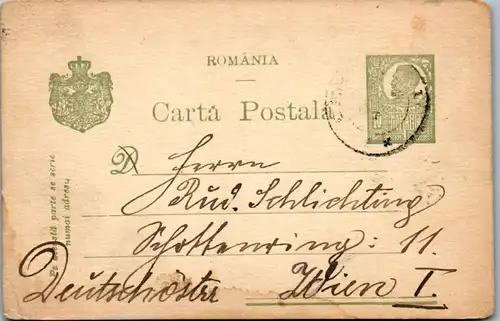 ROMÂNIA
Cartă Poștală
D Herrn
Rud. Schlichting
Schottenring: 11.
Deutschöstr Wien I.
Pe această parte se scrie
numai adresa